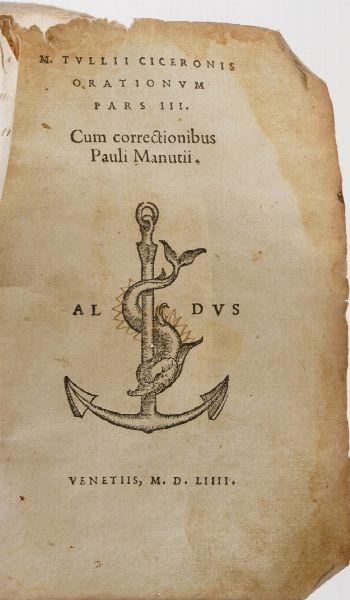 M. TVLLII CICERONIS
ORATIONVM
PARS III.
Cum correctionibus
Pauli Manutii.
AL DVS
VENETIIS, M. D. LIIII.